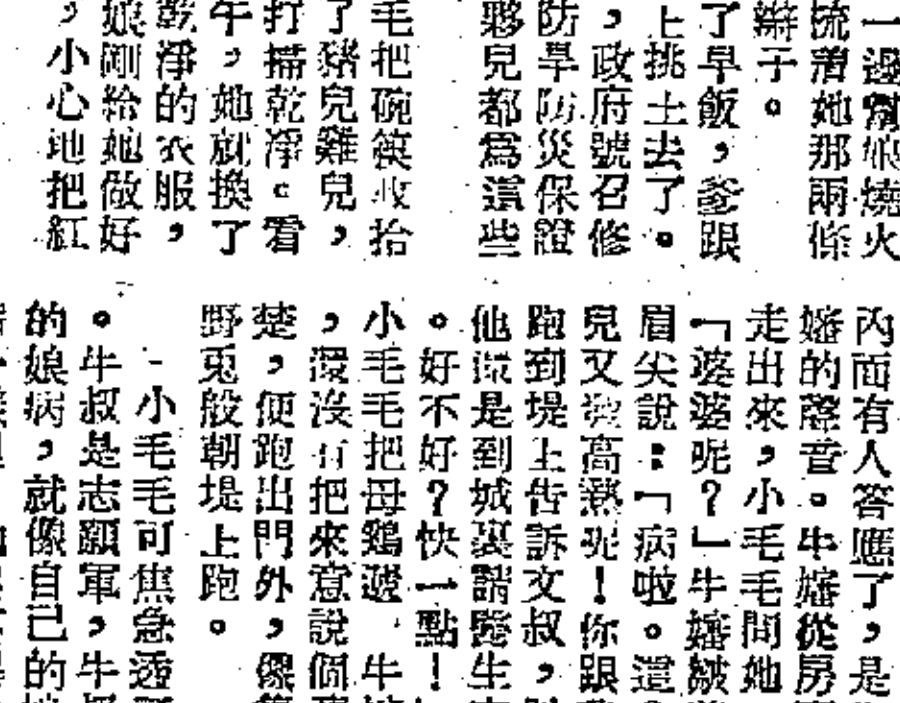 一邊幫娘燒火
梳着她那兩條
辮子。
了早飯，爹跟
上挑土去了。
，政府號召修
防旱防災保證
夥兒都爲這些
毛把碗筷收拾
了豬兒雞兒，
打掃乾凈。看
午，她就換了
乾淨的衣服，
娘剛給她做好
，小心地把紅
內面有人答應了，是
嬸的聲音。牛嬸從房
走出來，小毛毛問她
「婆婆呢？」牛嬸皺
眉尖說：「病啦。這
兒又發高熱呢！你跟
跑到堤上告訴文叔，
他還是到城裏請醫生
。好不好？快一點！
小毛毛把母鷄遞　牛
，還沒有把來意說個
楚，便跑出門外，像
野兎般朝堤上跑。
小毛毛可焦急透
。牛叔是志願軍，牛
的娘病，就像自己的